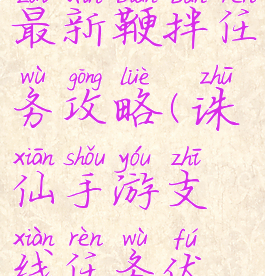 zuì xīn biān bàn rèn
最新鞭拌任
wù gōng lüè zhū
务攻略(诛
xiān shǒu yóu zhī
仙手游支
xiàn rèn wù fú
线任务伏